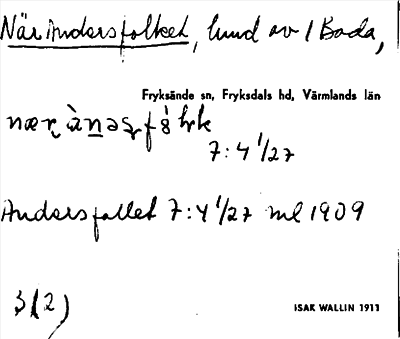 När Andersfolket, lund av 1 Bada,
Fryksände sn, Fryksdals hd, Värmlands län
7:4 1/27
Andersfallet 7:4 1/27 ml 1909
3(2)
ISAK WALLIN 1911